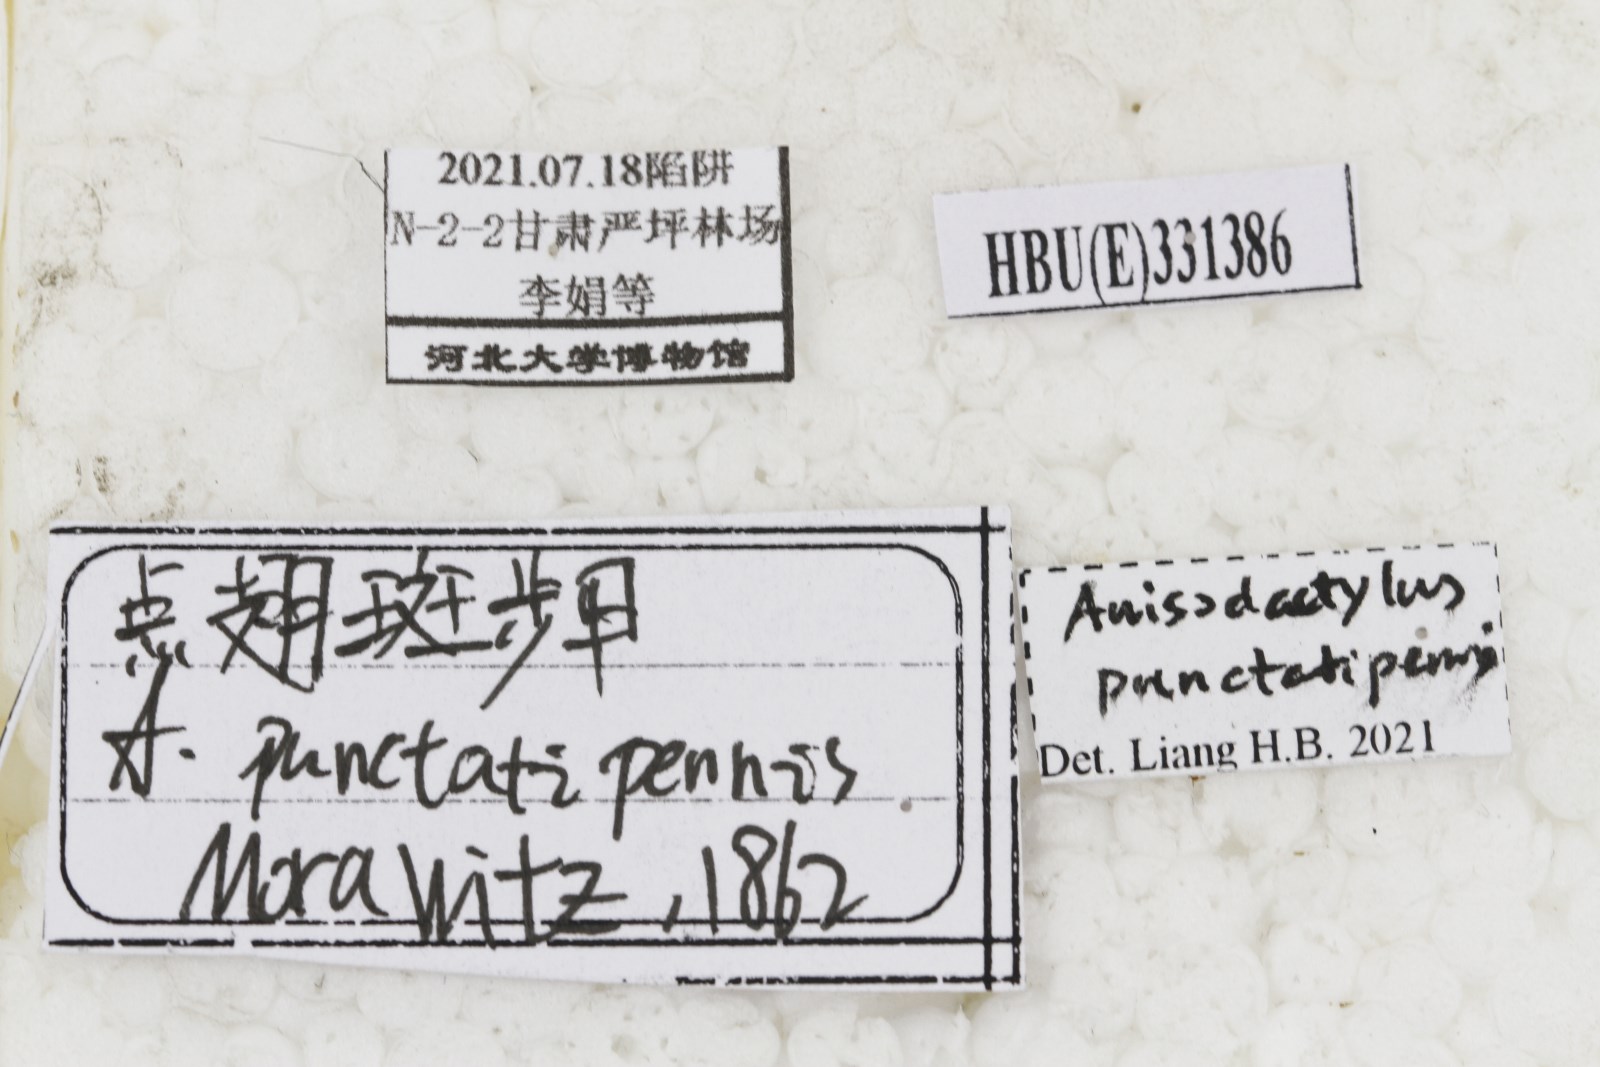 2021.07.18陷阱
N-2-2甘肃严坪林场
李娟等
河北大学博物馆
HBU(E)331386
点翅斑步甲
A. punctatipennis
Morawitz, 1862
Anisodactylus
punctatipennis
Det. Liang H.B. 2021